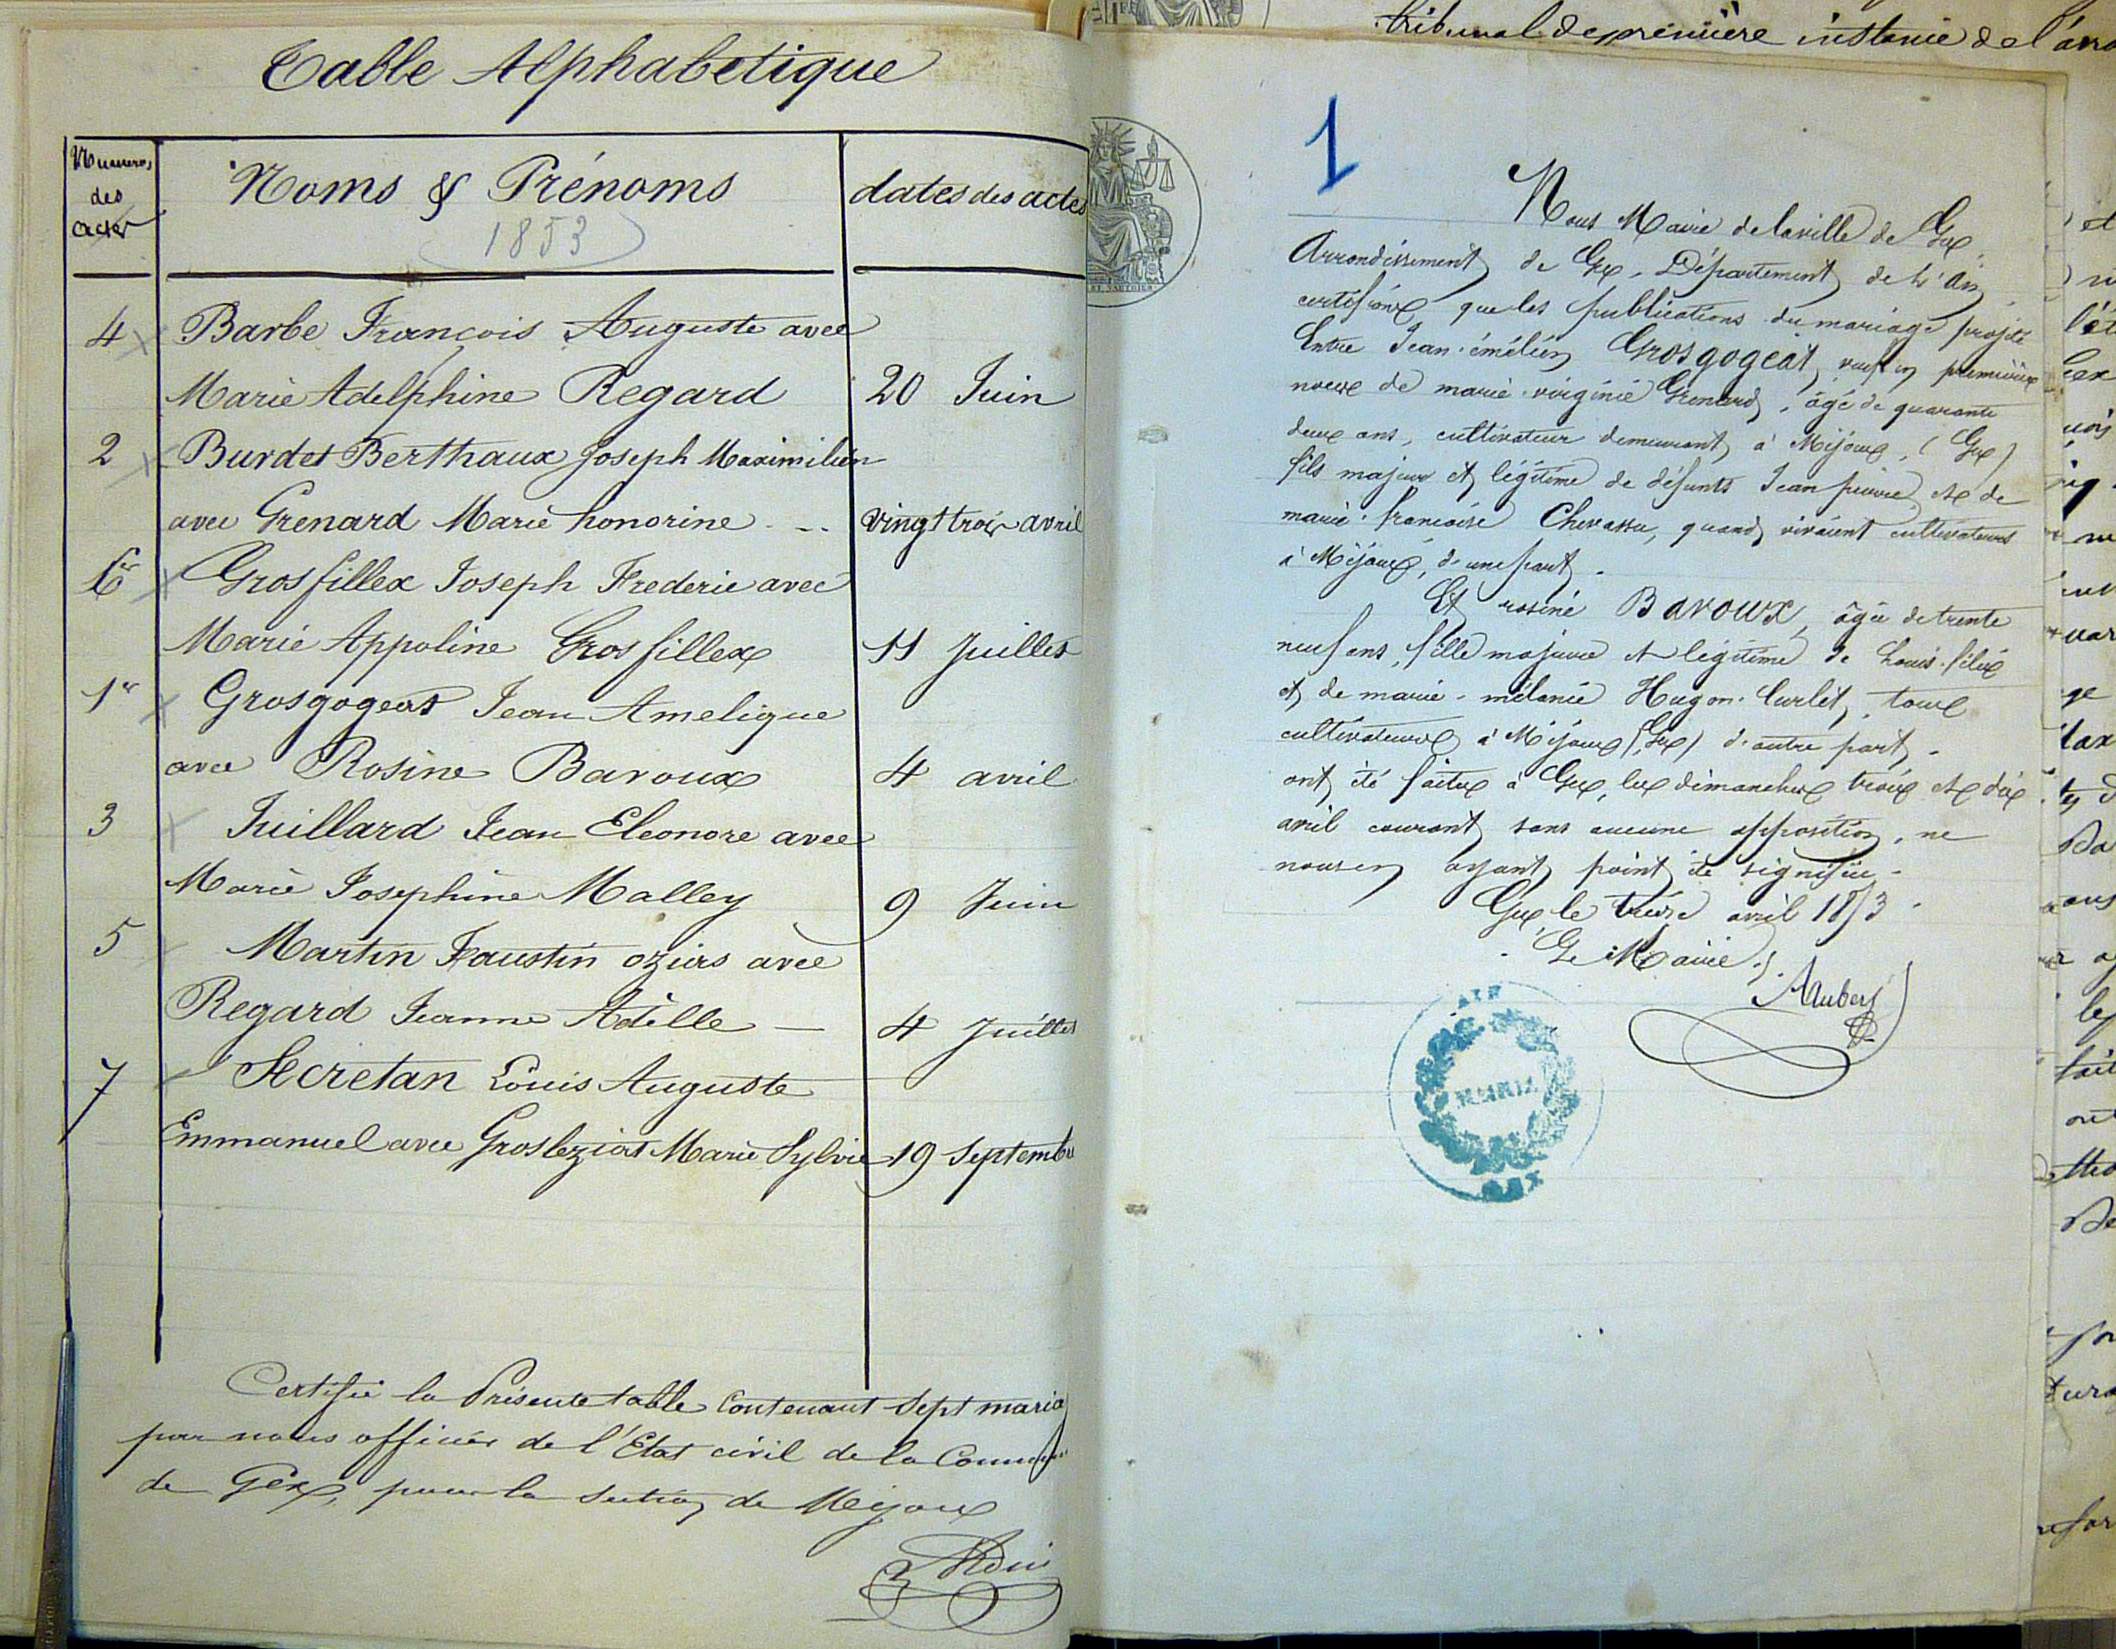 Table Alphabetique
Numeros
des
actes
Noms & Prénoms
1853
dates des actes
4 Barbe François Auguste avec
Marie Adelphine Regard 20 Juin
2 Burdet Berthaux Joseph Maximilien
avec Grenard Marie honorine - - vingt trois avril
6 Grosfillex Joseph Frederic avec
Marie Appoline Grosfillex 11 Juillet
1er Grosgogeat Jean Amelique
avec Rosine Baroux 4 avril
3 Juillard Jean Eleonore avec
Marie Josephine Malley 9 Juin
5 Martin Faustin ozias avec
Regard Jeanne Adèlle — 4 Juillet
7 Secretan Louis Auguste
Emmanuel avec Grosleziat Marie Sylvie 19 Septembre
Certifié la Présente table Contenant Sept maria
par nous officier de l'Etat civil de la Commune
de Gex, pour la Section de Mijoux
tribunal de première instance de l'arro
1
Nous Maire de la ville de Gex,
Arrondissement de Gex, Département de l'ain,
certifions que les publications du mariage projeté
Entre Jean-émélien Grosgogeat, veuf en premières
noces de marie-virginie Grenard, âgé de quarante
deux ans, cultivateur demeurant à Mijoux, (Gex)
fils majeur et légitime de défunts Jean pierre, et de
marie-francoise Chevassu, quand vivaient cultivateurs
à Mijoux, d'une part.
Et rosine Baroux, âgée de trente
neuf ans, fille majeure et légitime de Louis-félix
et de marie-mélanie Hugon-Curlet, tous
cultivateurs à Mijoux (Gex) d'autre part,
ont été faites à Gex, les dimanches trois et dix
avril courant sans aucune opposition, ne
nous en ayant point été signifiée.
Gex, le treize avril 1853.
Le Maire,
AIN
MAIRIE
GEX